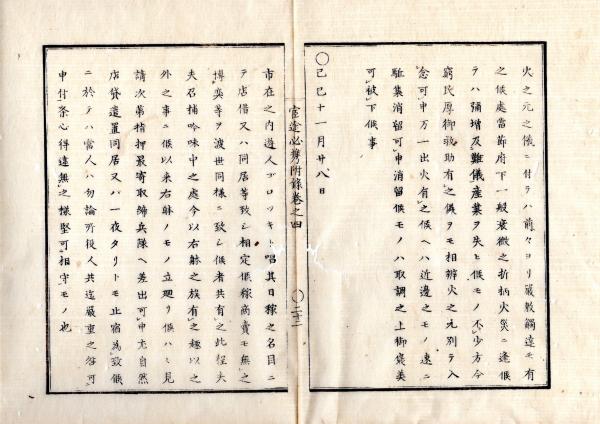 火之元之儀ニ付テハ前々ヨリ嚴敷觸達モ有
之候處當節府下一般衰微之折柄火災ニ逢候
テハ彌增及難儀產業ヲ失ヒ候モノ不少方今
窮民厚御救助有之候ヲモ相辨火之元別テ入
念可申万一出火有之候ヘハ近邊之モノ速ニ
駈集消留可申消留候モノハ取調之上御褒美
可被下候事
〇己巳十一月廿八日
官途必携附錄卷之四
〇二十二
市在之内遊人ブロツキト唱其日稼之名目ニ
テ店借又ハ同居等致シ相定候稼商賣モ無之
博奕等ヲ渡世同樣ニ致シ候者共有之此程夫
夫召捕吟味中之處今以右躰之族有之趣以之
外之事ニ候以来右躰ノモノ立廻リ候ハヽ見
請次第捕押最寄取締兵隊ヘ差出可申尤自然
店貸遣置同居又ハ一夜タリトモ止宿為致候
ニ於テハ當人ハ勿論所役人共迄嚴重之咎可
申付条心得違無之樣堅可相守モノ也